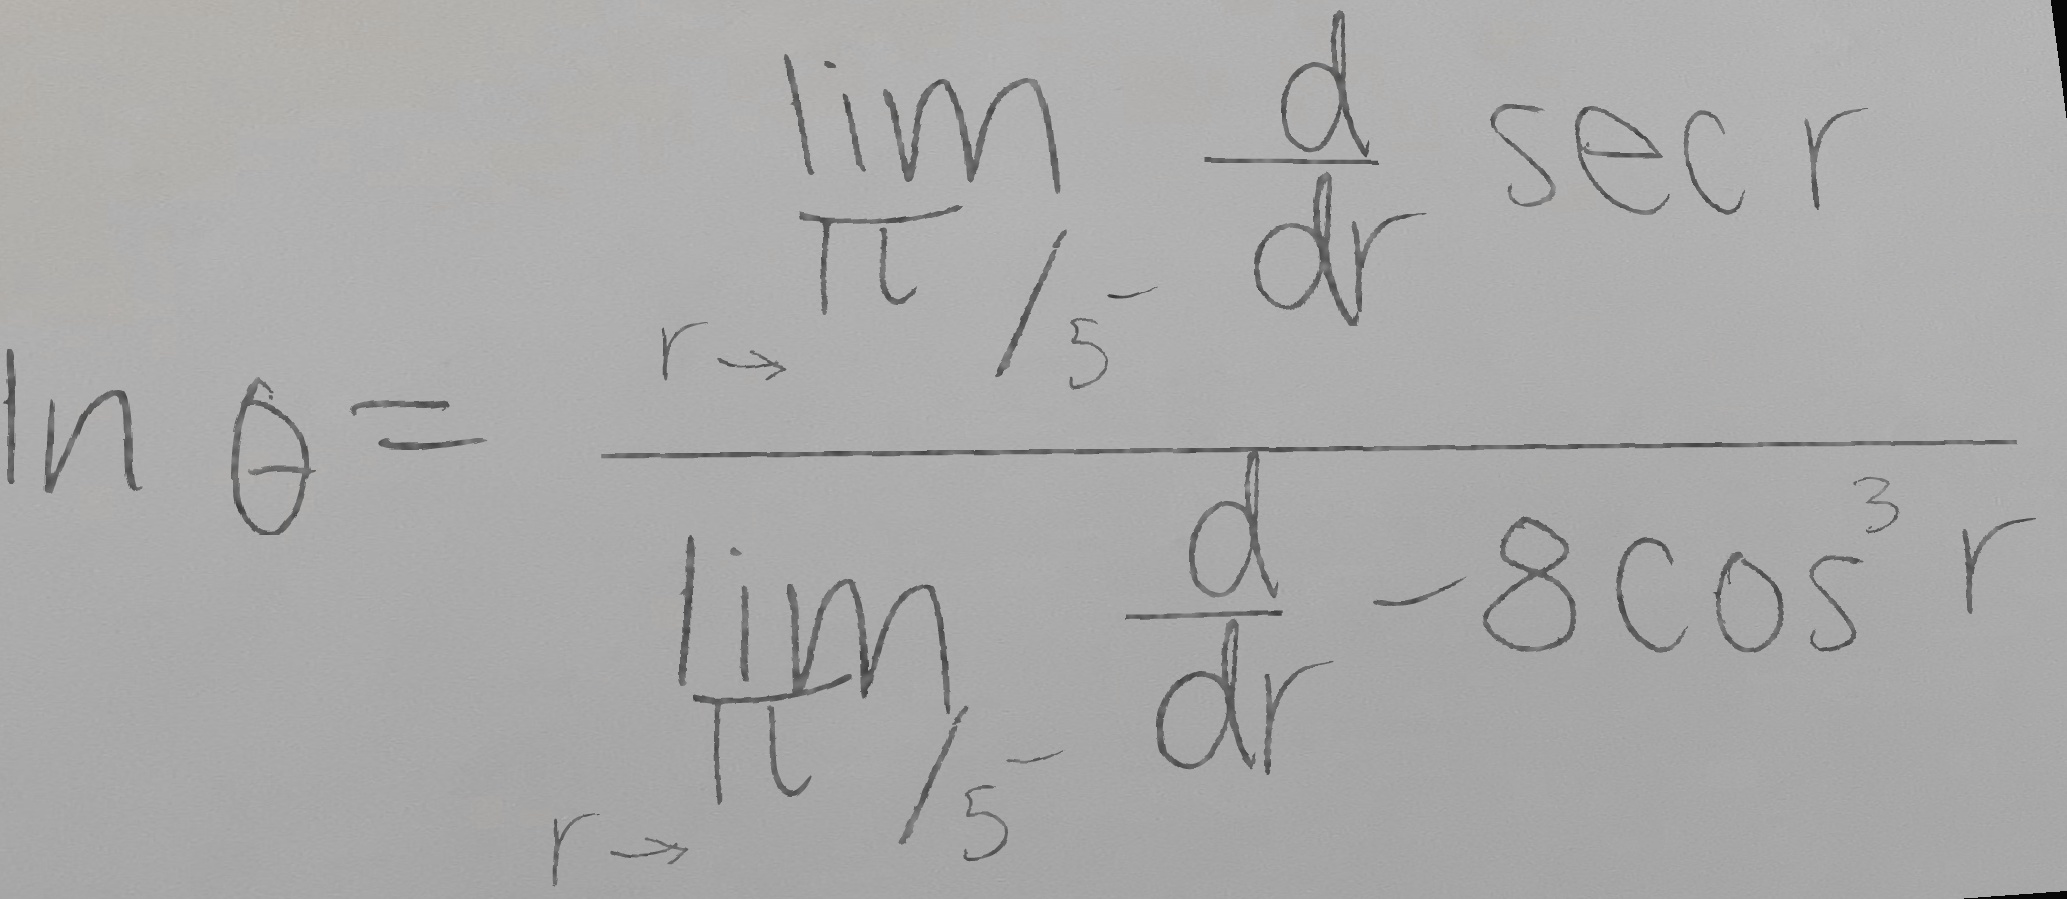 \ln \theta = \frac{\lim_{r \to \pi/5^-} \frac{d}{dr} \sec r}{\lim_{r \to \pi/5^-} \frac{d}{dr} -8\cos^3 r}